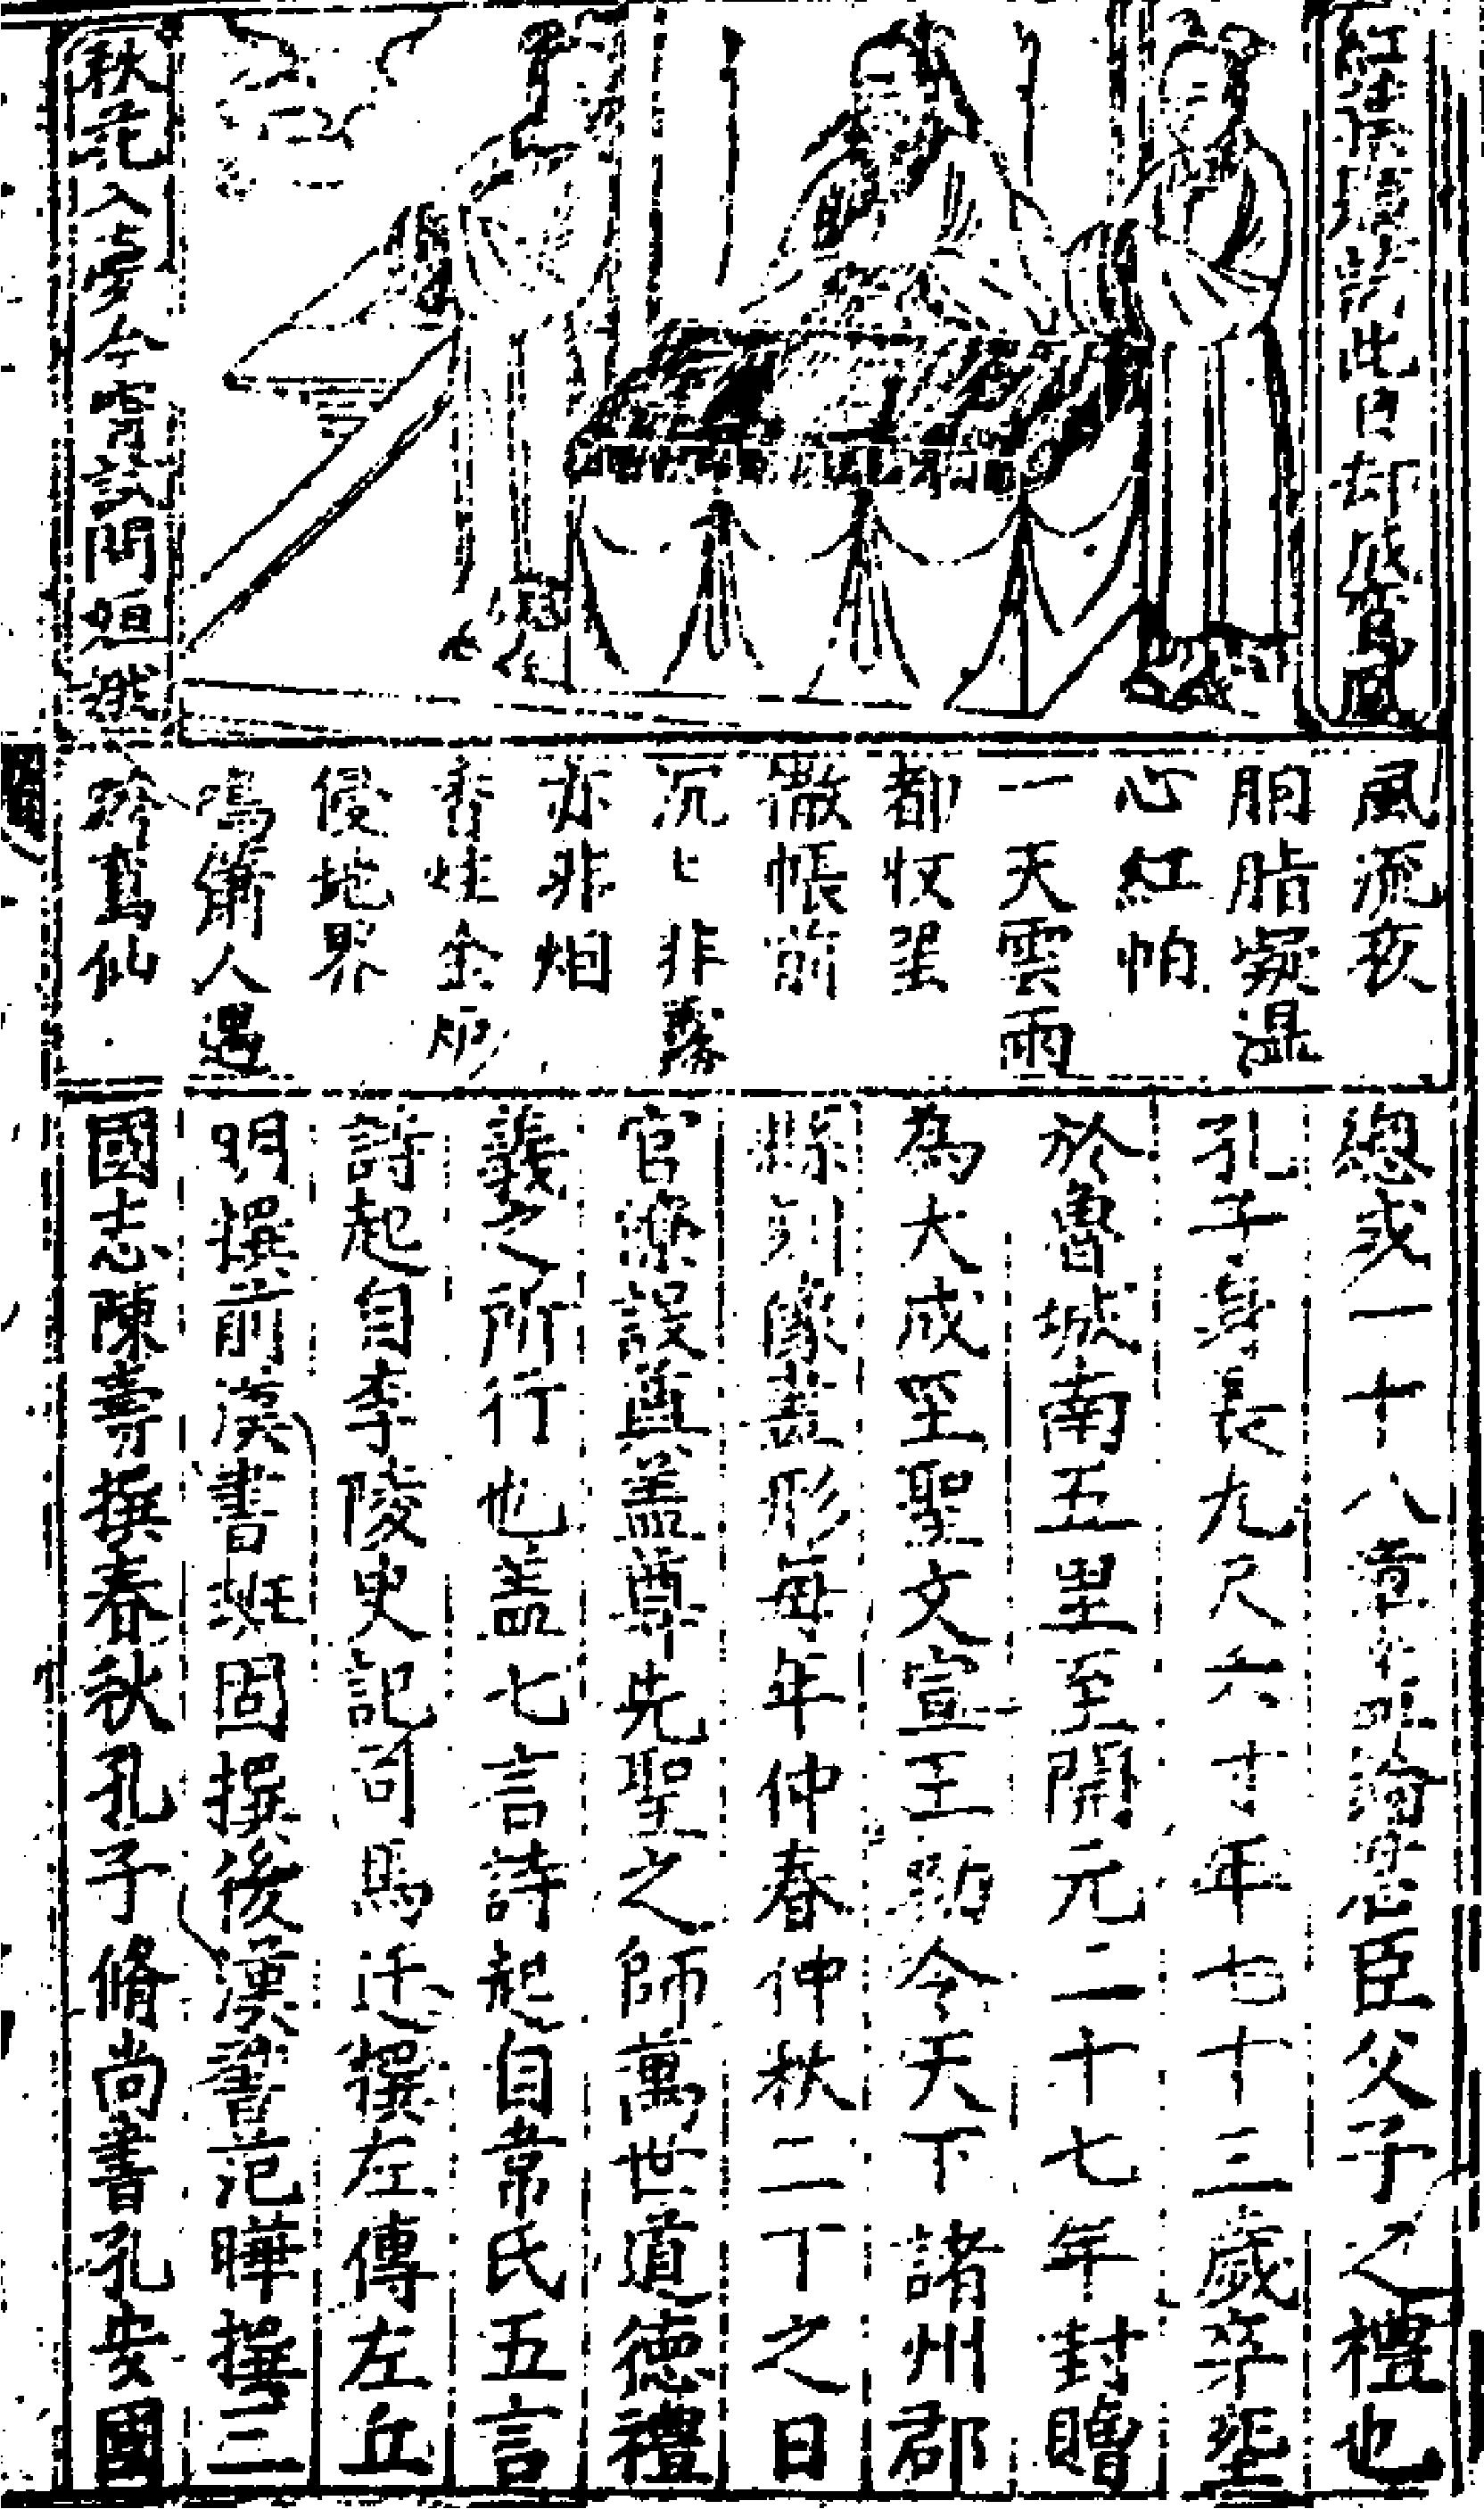 此日却成
秋花入夢今宵試問姮娥
風流夜
胭脂凝濕
心紅帕
一天雲雨
都收
撒帳前
沉〻非霧
亦非烟
香炷金炉
侵地界
鳴簫人遇
鸞仙
總成一十八章皆明論君臣父子之禮也
孔子身長九尺六寸年七十三歲卒塟
於魯城南五里至開元二十七年封贈
為大成至聖文宣王勑令天下諸州郡
縣刻像畫形每年仲春仲秋二丁之日
官僚設奠盖尊先聖之師萬世道德禮
義之所行也盖七言詩起自韋氏五言
詩起自李陵史記司馬迁撰左傳左丘
明撰前漢書班固撰後漢書范曄撰三
國志陳壽撰春秋孔子脩尚書孔安國